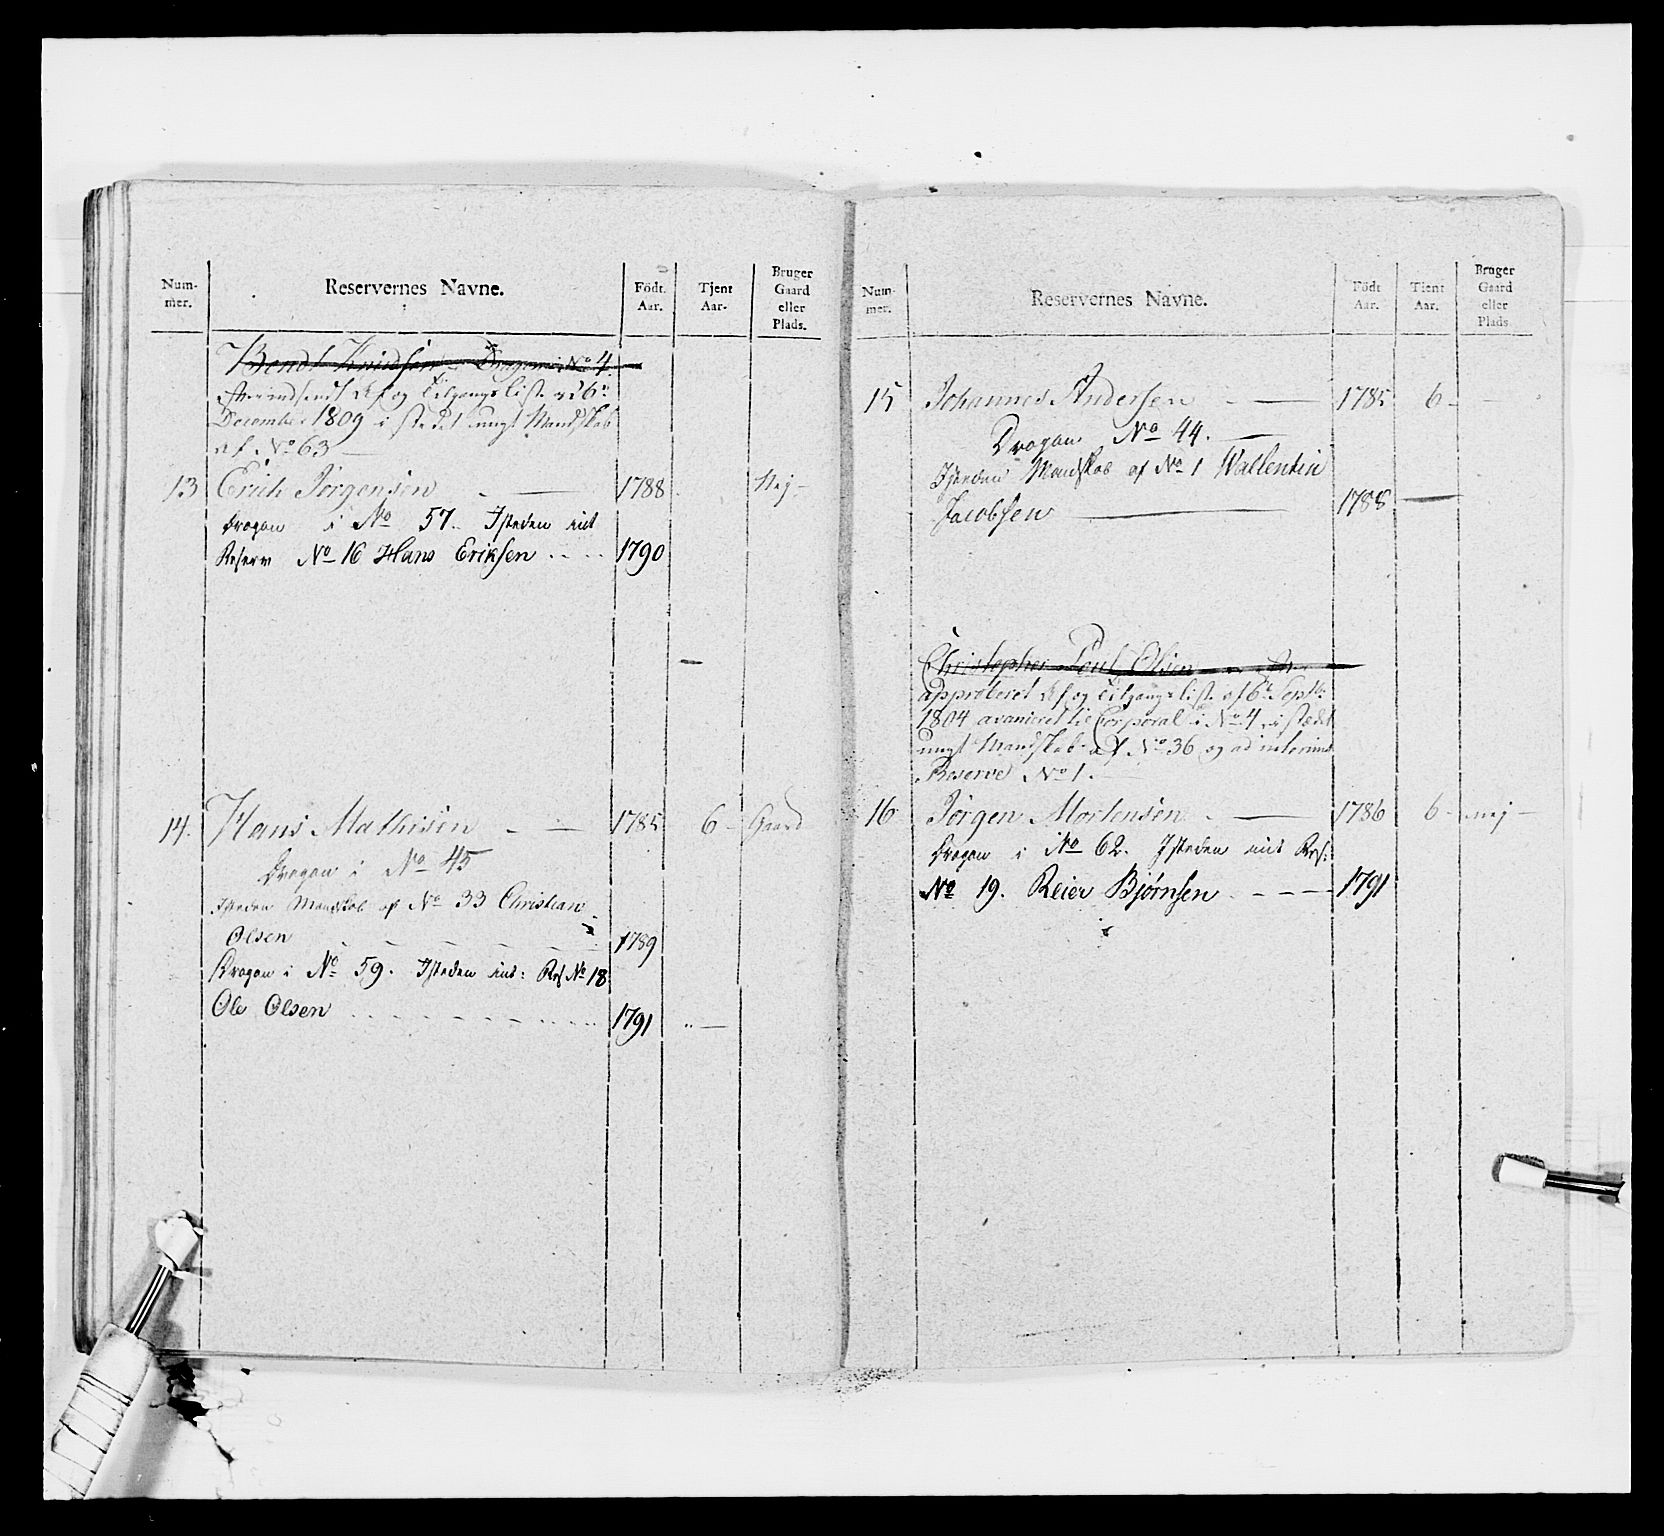 Num-
mer.
Reservernes Navne.
Født
Aar.
Tjent
Aar.
Bruger
Gaard
eller
Plads.
Bendt Knudsen - Dragon i No 4
efter indsendt Af og Tilgangsliste af 6te
December 1809 i stedet ungt Mandskab
af No 63
13 Erich Jørgensen 1788 Nej
Dragon i No 57. Isteden int
Reserv No 16 Hans Eriksen 1790
14. Hans Mathisen 1785 6 Gaard
Dragon i No 45
Isteden Mandskab af No 33 Christian
Olsen 1789
Dragon i No 59. Isteden int: Res No 18
Ole Olsen 1791
Num-
mer.
Reservernes Navne.
Født
Aar.
Tient
Aar.
Bruger
Gaard
eller
Plads.
15 Johannes Andersen 1785 6
Dragon No 44.
Isteden Mandskab af No 1 Wallentin
Jacobsen 1788
Christopher Poul Olsen
approberet Af og Tilgangsliste af 6te Septbr:
1804 avanceret til Corporal i No 4, i stædet
ungt Mandskab af No 36 og ad interims
Reserve No 1.
16 Jørgen Mortensen 1786 6 nej
Dragon i No 62. Isteden int Res:
No 19. Reier Bjørnsen 1791